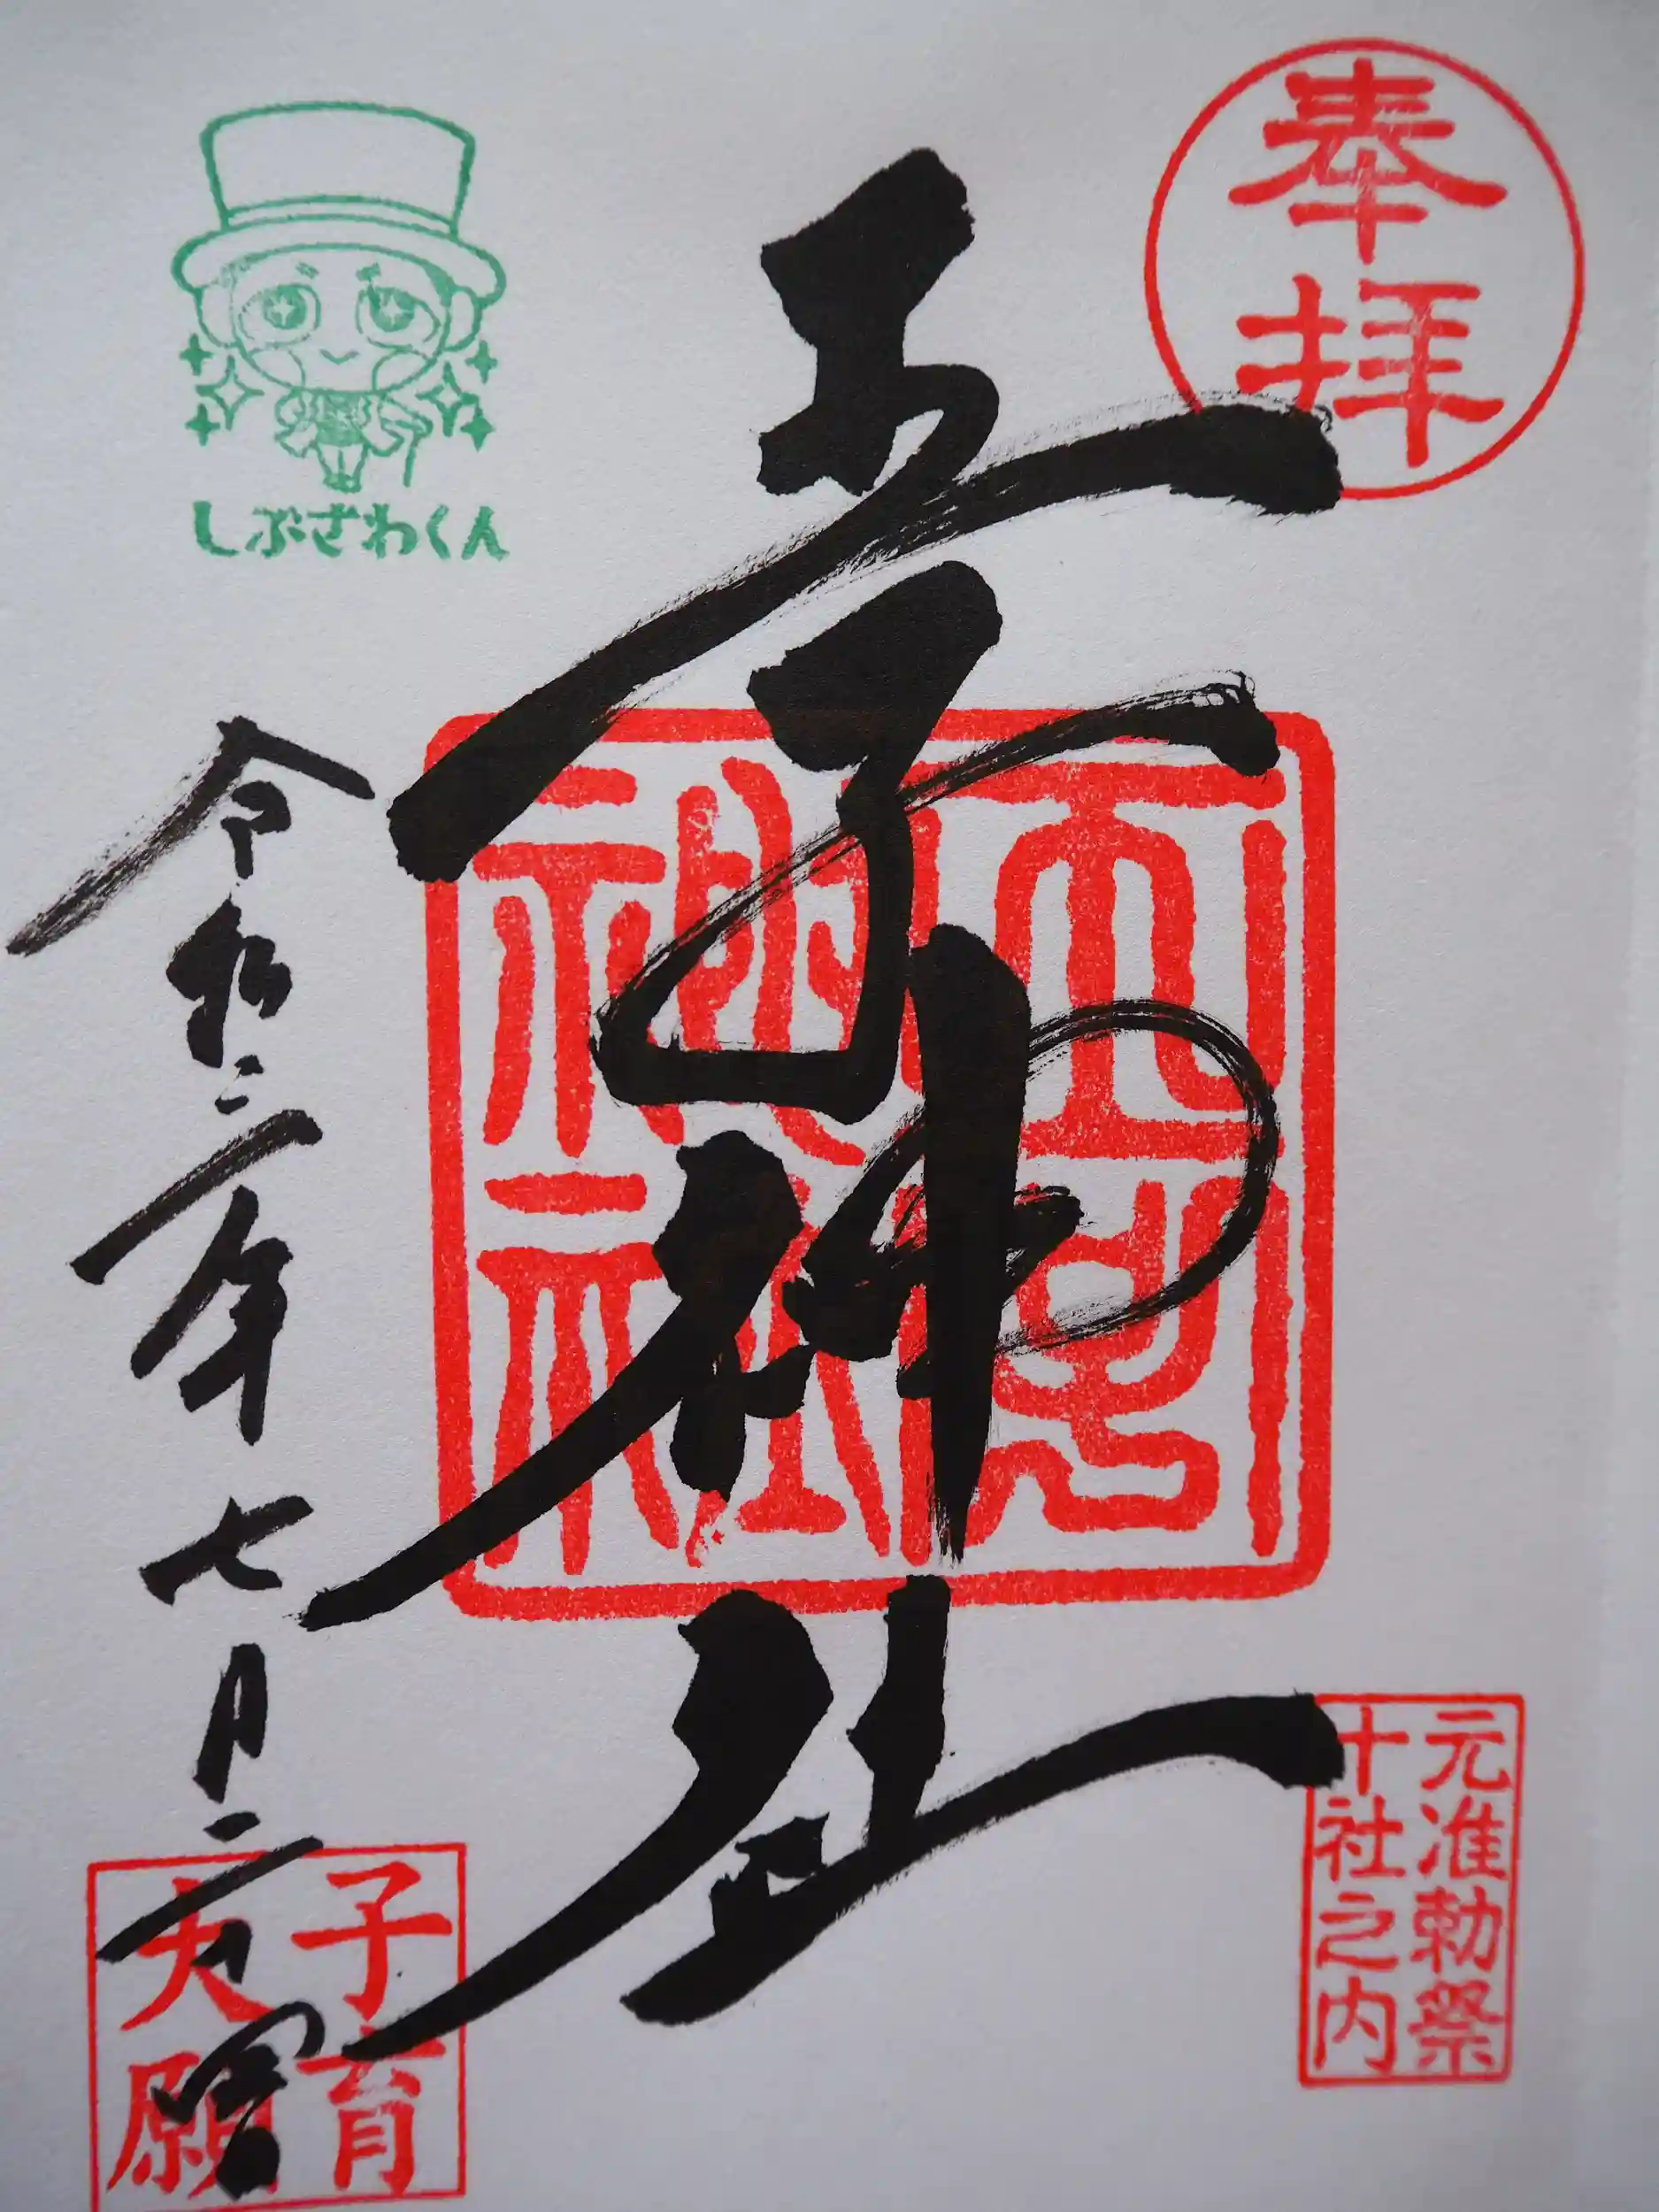 奉拝
しぶざわくん
王子神社
王子
神社
元准勅祭
十社之内
令和二年七月二
子育
大願